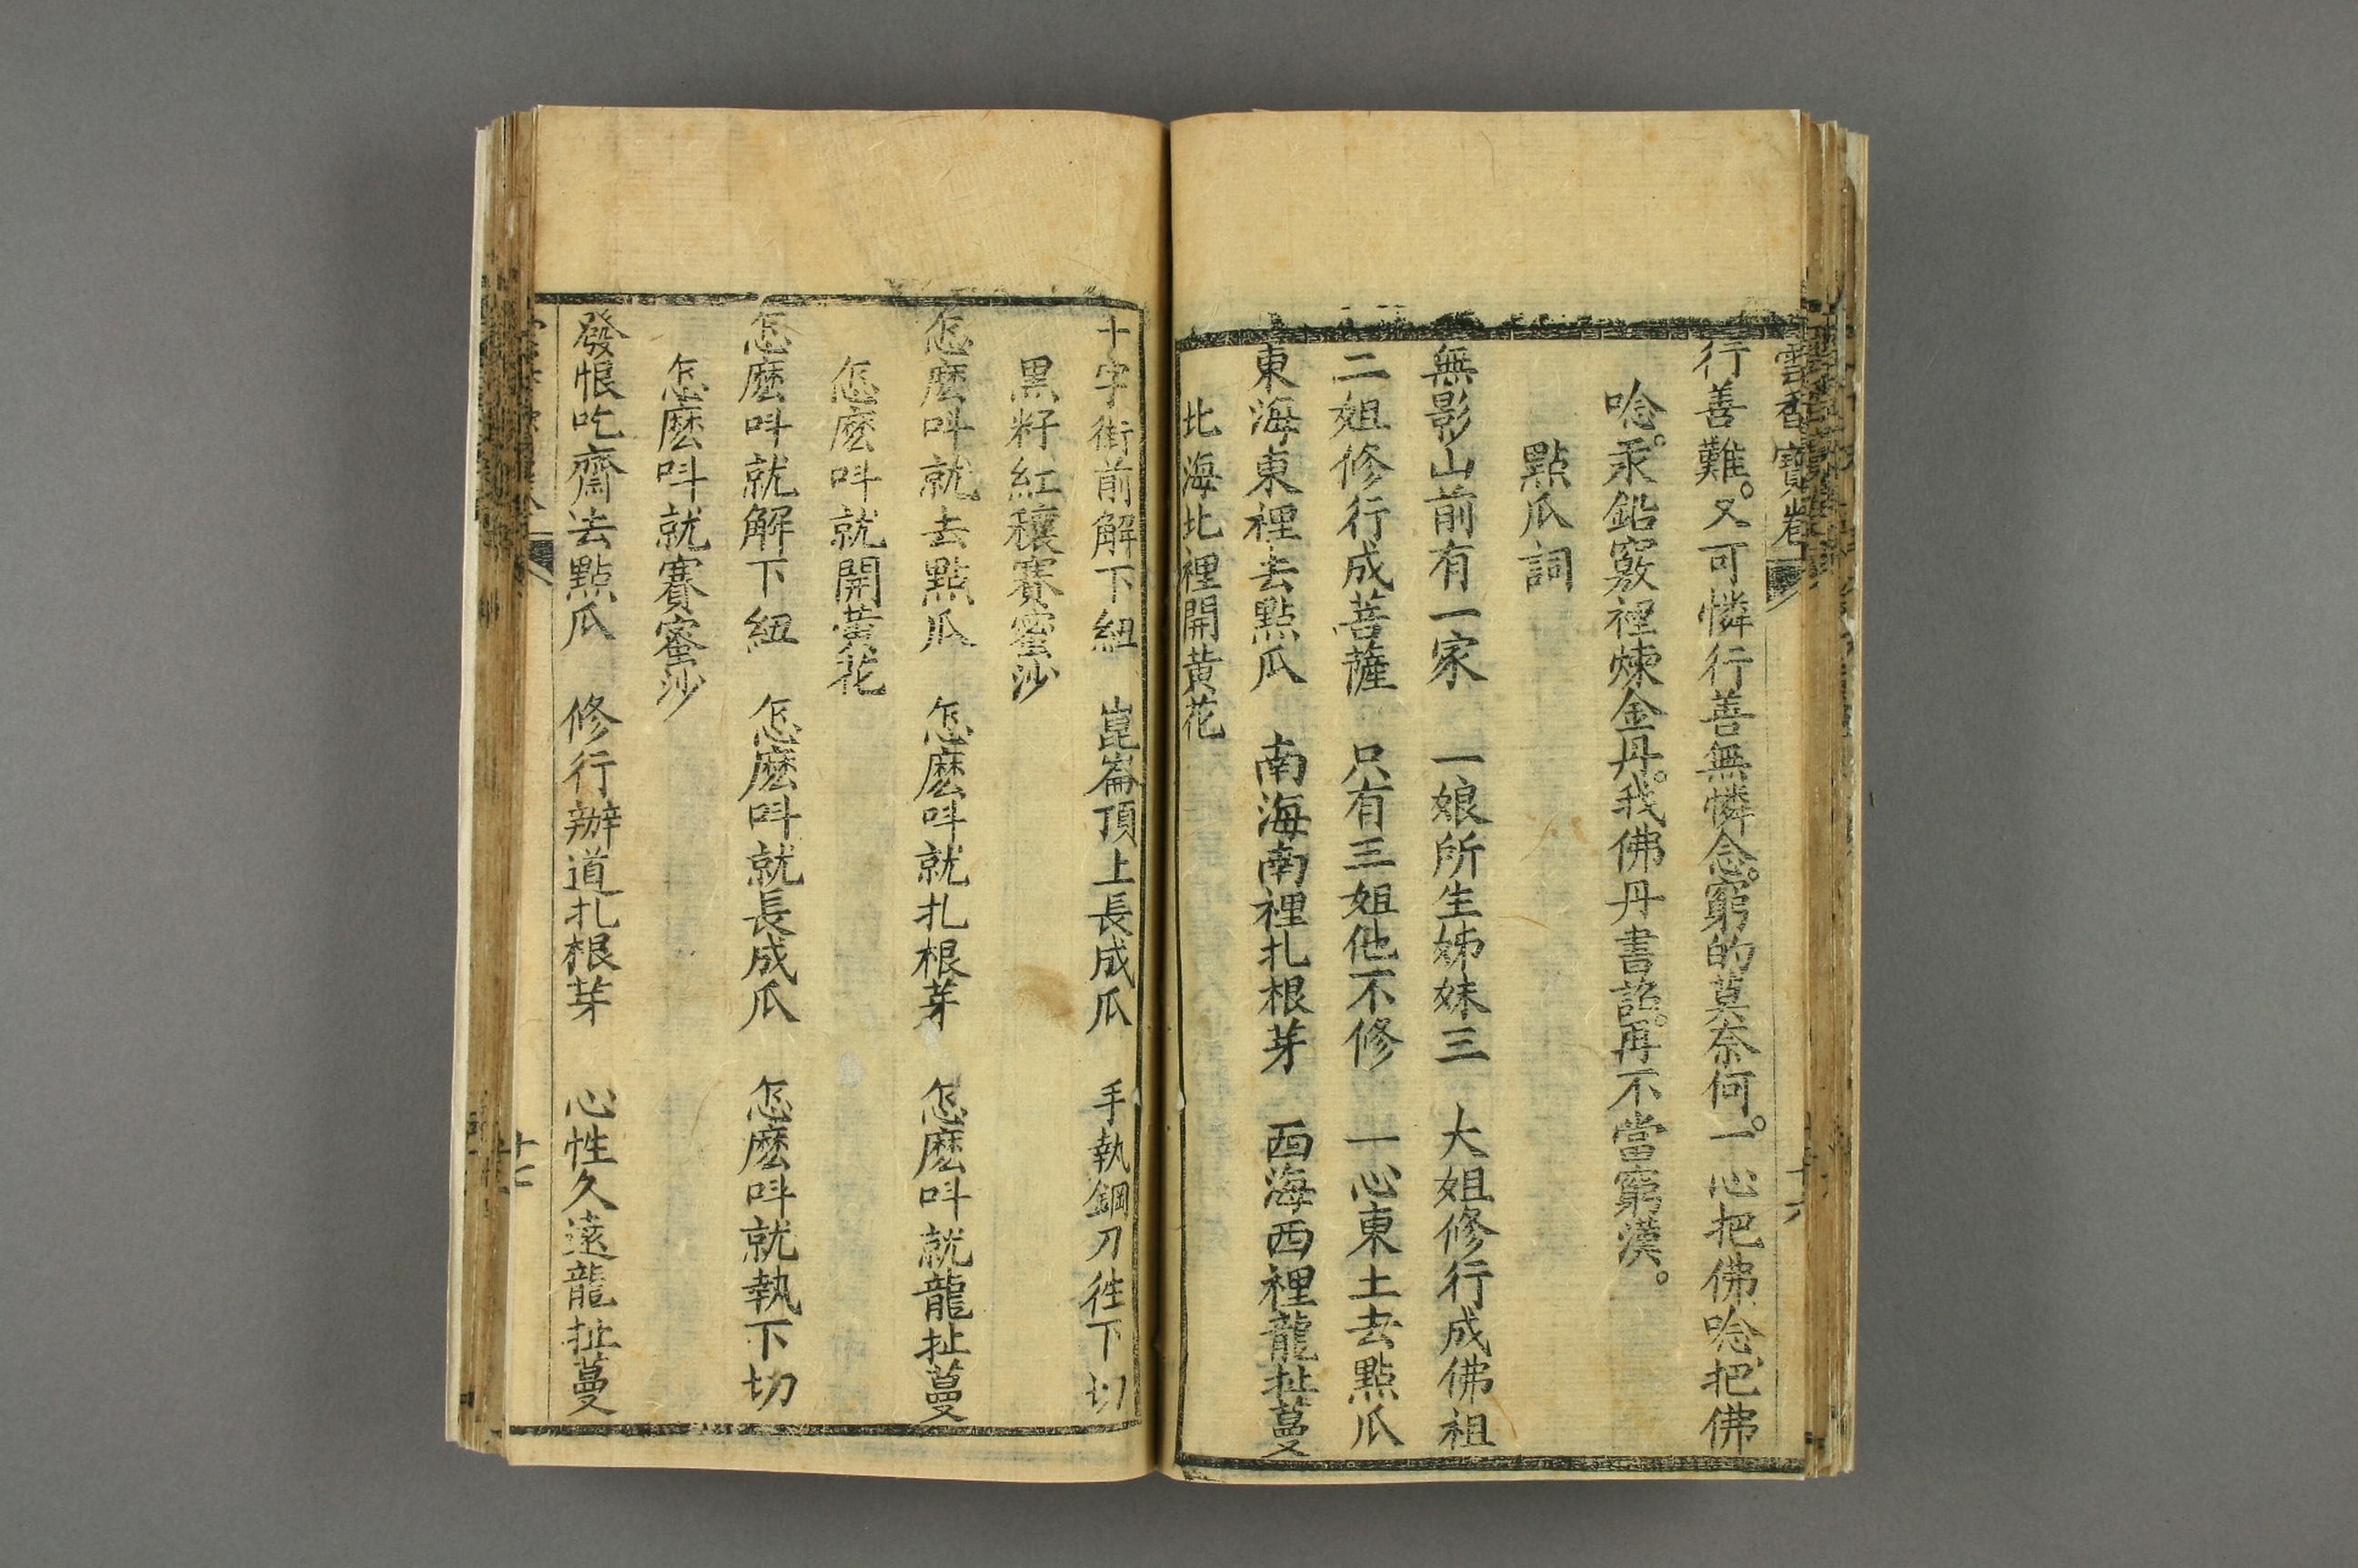 雲香寶卷
十六
行善難。又可憐行善無憐念。窮的莫奈何。一心把佛唸、把佛
唸。汞鉛竅裡煉金丹。我佛丹書詔。再不當窮漢。
點瓜詞
無影山前有一家　一娘所生姊妹三　大姐修行成佛祖
二姐修行成菩薩　只有三姐他不修　一心東土去點瓜
東海東裡去點瓜　南海南裡扎根芽　西海西裡龍扯蔓
北海北裡開黃花
十字街前解下紐　崑崙頂上長成瓜　手執鋼刀往下切
黑籽紅穰賽蜜沙
怎麼呌就去點瓜　怎麼呌就扎根芽　怎麼呌就龍扯蔓
怎麼呌就開黃花
怎麼呌就解下紐　怎麼呌就長成瓜　怎麼呌就執下切
怎麼呌就賽蜜沙
發恨吃齋去點瓜　修行辦道扎根芽　心性久遠龍扯蔓
十七